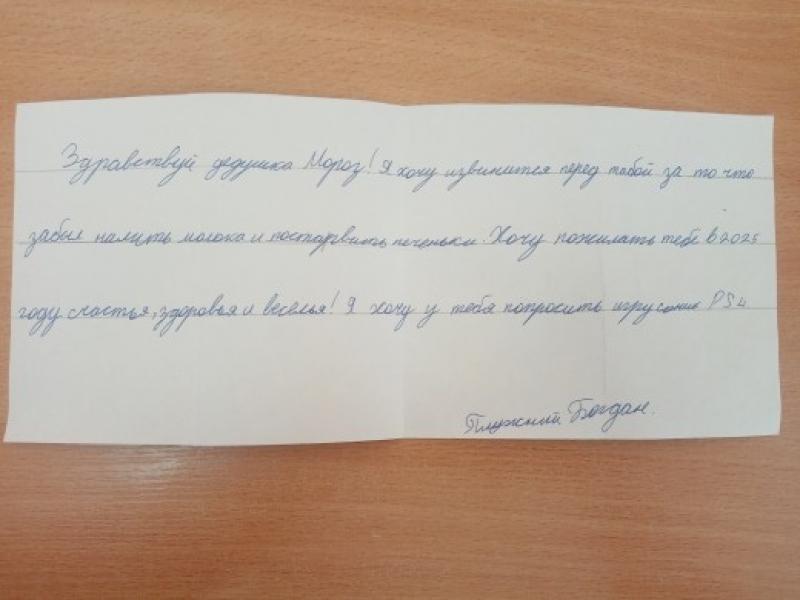 Здравствуй дедушка Мороз! Я хочу извинится перед табой за то что
забыл налить молока и поставить печеньки. Хочу пожилать тебе в 2025
году счастья, здоровья и веселья! Я хочу у тебя попросить игру PS4
Плужний Богдан.